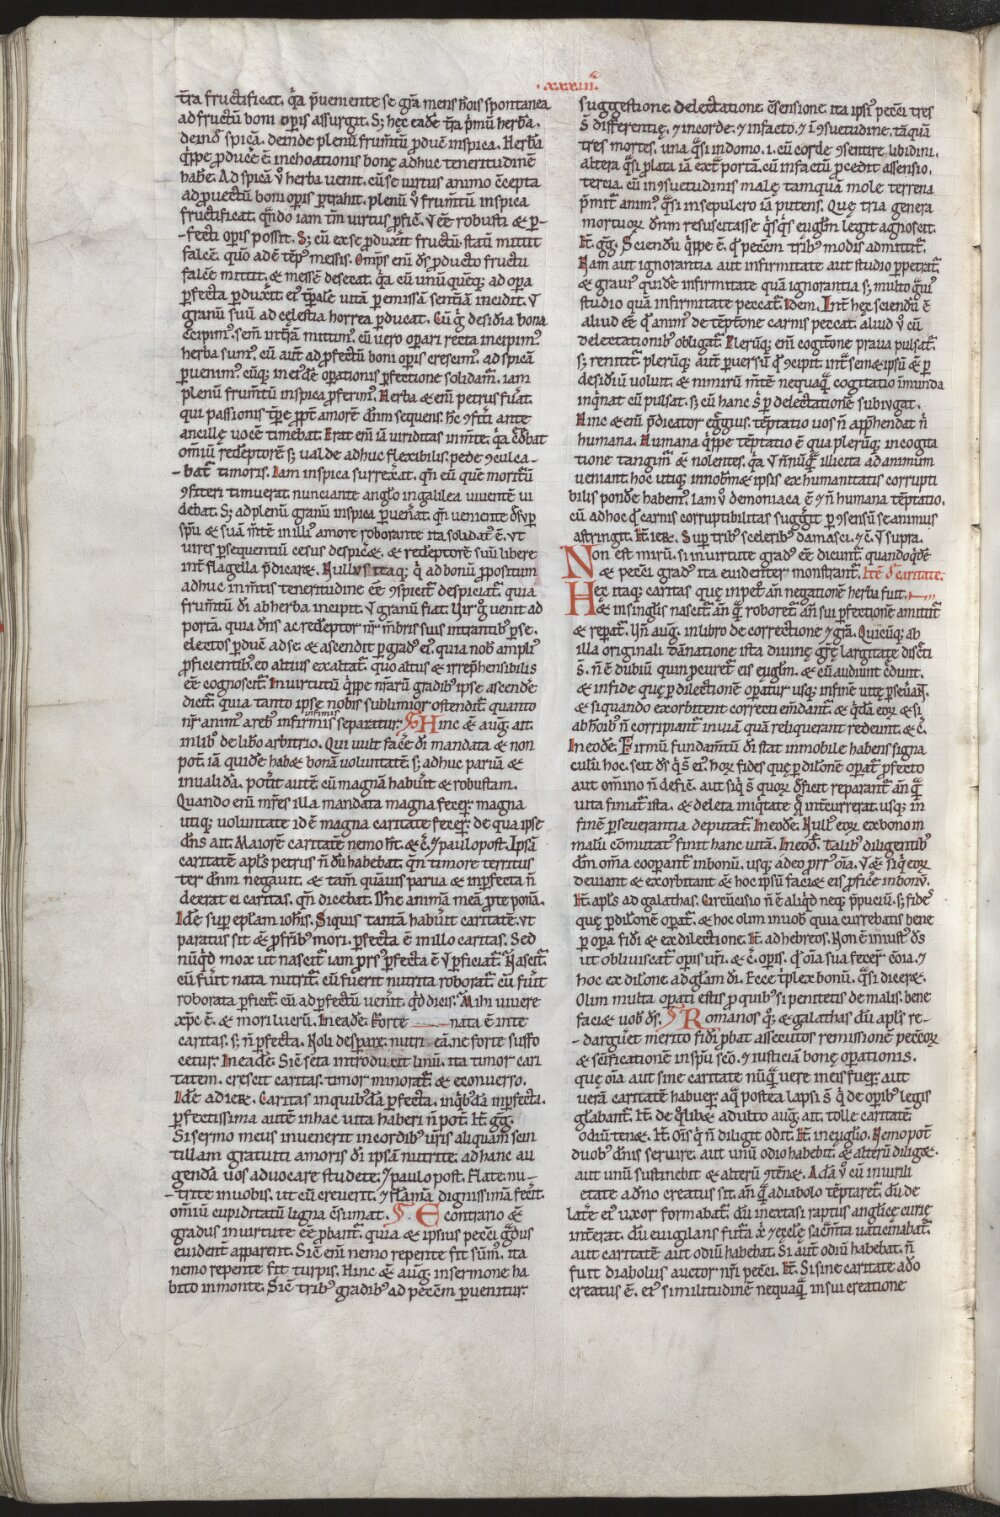 .xxxiii.
t̄ra fructificat. q̇a p̄ueniente se gr̄a mens hōis spontanea
ad fructū boni oꝑis assurgit. S; hęc eadē t̄ra p̄mū herbā.
deinđ spicā. deinde plenū frum̄tū p̄duc̄ in spica. Herbā
q̇ppe ꝓducẽ ē inchoationis bonę adhuc teneritudinē
habē. Ad spicā v̊ herba uenit. cū se uirtus animo c̄cepta
ad ꝓuectū boni oꝑis ꝑtrahit. plenū v̊ frum̄tū in spica
fructificat. qn̄do iam tm̄ uirtus ꝓfic̄. vt ēē robusti & ꝑ-
-fecti oꝑis possit. S; cū ex se ꝓdux̄it fructū. statī mittit
falcē. qm̄ adē tēp᷒ messis. Omps enī ds̄ ꝓducto fructu
falcē mittit. & messē desecat. q̇a cū unū quēq; ad oꝑa
ꝑfecta ꝑdux̄it ei᷒ tp̄ale uitā ꝑ emissā sentn̄iā incidit. v̄
granū suū ad celestia horrea ꝑducat. Cū g̊ desid̄ia bona
c̄cipim᷒. sem̄ in tr̄ā mittim᷒. cū uero oꝑari recta incipim᷒
herba sum᷒. cū aut̄ ad ꝓfectū boni oꝑis crescim᷒. ad spicā
ꝑuenim᷒. cūq; in ei᷒dē oꝑationis ꝑfectione solidam᷒. iam
plenū frum̄tū in spica ꝓferim᷒. Herba & enī petrus fūat.
qui passionis tp̄e ꝓpt̄ amorē dn̄m sequens. hc̄ ꝯfit̄i ante
ancillę uocē timebat. Erat enī iā uiriditas in m̄te. q̇a c̄debat
om̄iū redēptorē s; ualde adhuc flexibilis. pede ꝯculca-
-bat᷒ timoris. Iam in spica surrex̄at. qn̄ eū quē moritūrū
ꝯfiteri timuerat. nunciante anglo in galilea uiuentē ui
debat. S; ad plenū granū in spica ꝑuen̄at. qn̄ ueniente desuꝑ
spū & suā m̄tē in illi᷒ amore roborante ita solidat᷒ ē. vt
uires ꝑsequentiū cesus despic̄et. & redēptorē suū libere
int̄ flagella p̄dicaret. Nullus itaq; q̇ ad bonū ꝓpositum
adhuc in m̄tis teneritudine ēē ꝯspicit᷒ despiciat᷒. quia
frum̄tū di᷒ ab herba incipit. v̄ granū fiat. Hī g̊ uenit ad
portā. quia dn̄s ac redēptor nr̄ m̄bris suis intrantib᷒ ꝑ se.
electos ꝓduc̄ ad se. & ascendit ꝑ grad᷒ ei᷒. quia nob ampli᷒
ꝓficientib᷒. eo altius exaltat᷒. quo altus & irrep̄hensibilis
ēē cognoscit᷒. In uirtutū q̇ppe nr̄arū gradib᷒ ipse ascendē
dicit᷒. quia tanto ipse nobis sublimior ostendit᷒. quanto
nr̄ anim᷒ a reb᷒ infirmis separatur. Hinc & aug̅. ait
in lib᷒ de lib̄o arbitrio. Qui uult facē di mandata & non
pot. iā quidē habet bonā uoluntatē. s; adhuc paruā &
inualidā. poterit autē cū magnā habūit & robustam.
Quando enī mr̄es illa mandata magna fecer̄. magna
utiq; uoluntate id ē magna caritate fecer̄: de qua ipse
dn̄s ait. Maiorē caritatē nemo h̄t. & c̄. ⁊ paulo post. Ipsā
caritatē apl̄s petrus n̄ dū habebat. qn̄ timore territus
ter dn̄m negauit. & tam̄. quāuis parua & inꝑfecta n̄
deerat ei caritas. qn̄ dicebat. Dn̄e animā meā ꝓ te ponā.
Idē suꝑ epl̄am ioh̄is. Siquis tantā habūit caritatē. vt
paratus sit & ꝓ frīb᷒ mori. ꝑfecta ē in illo caritas. Sed
nūq̇d mox ut nascit᷒ iam ꝓrs᷒ ꝑfecta ē. v̄ ꝑficiat᷒. Nascit᷒
cū fūit nata nutrit᷒. cū fūerit nutrita roborat᷒. cū fūit
roborata ꝑficit᷒. cū ad ꝑfectū uen̄it. q̇d dicis. Mihi uiuere
xp̄c ē. & mori lucrū. In eadē. Forte nata ē in te
caritas. s; n̄ ꝑfecta. Noli desꝑare. nutri eā. ne forte suffo
cetur. In eadē. Sic̄ seta introducit linū. ita timor cari
tatem. crescit caritas. timor minorat᷒. & econuerso.
Idē ad ier. Caritas in quib᷒dā ꝑfecta. in q̇b᷒dā inꝑfecta.
ꝑfectissima autē in hac uita haberi n̄ pot. It̄ gg̅.
Si sermo meus inuenerit in cordib᷒ ur̄is aliquam scin
tillam gratuiti amoris di ipsā nutrite. ad hanc au
gendā uos aduocare studete. ⁊ paulo post. Flate nu-
-trite in uobis. ut cū creuerit. ⁊ flāmā dignissimā fec̄it.
om̄iū cupiditatū ligna c̄sumat. E contrario &
gradus in uirtute ēē ꝓbant᷒. quia & ipsius pecci gradus
euident᷒ apparent. Sic̄ enī nemo repente fit sūm᷒. ita
nemo repente fit turpis. Hinc & aug̅. in sermone ha
bito in monte. Sic̄ trib᷒ gradib᷒ ad pecc̄m ꝑuenitur
suggestione. delectatione. c̄sensione. ita ipsi᷒ pecci tres
s̄ differentię. ⁊ in corde. ⁊ in facto. ⁊ ī ꝯsuetudine. tāquā
tres mortes. una q̇si in domo. i. cū corde ꝯsentit᷒ libidini.
altera q̇si plata iā ext᷒ portā. cū in factū ꝓcedit assensio.
tercia. cū in ꝯsuetudinis malę tamquā mole terrena
p̄mit᷒ anim᷒. q̇si in sepulcro iā putens. Quę tria genera
mortuoꝝ dn̄m resuscitasse q̇sq̇s eugl̄m legit agnoscit.
It̄ gg̅. Sciendū q̇ppe ē. qđ pecc̄m trib᷒ modis admittit᷒.
Nam aut ignorantia aut infirmitate aut studio ꝑpetrat᷒.
& graui᷒ quidē infirmitate quā ignorantia s; multo gui᷒
studio quā infirmitate peccat᷒. Idem. Int̄ hęc sciendū ē
aliud ēē qđ anim᷒ de tēptōne carnis peccat. aliud v̊ cū
delectationib᷒ obligat᷒. Pleruq; enī cogitōne praua pulsat᷒.
s; renitit᷒. pleruq; aut̄ ꝑuersū qđ ꝯcipit. int᷒ semetipsū & ꝑ
desid̄iū uoluit. & nimirū m̄tē nequaq̄ cogitatio īmunda
inq̇nat cū pulsat. s; cū hanc s̄ ꝑ delectationē subiugat.
Hinc & enī p̄dicator egregius. tēptatio uos n̄ app̄hendat n̄
humana. Humana q̇ppe tēptatio ē qua pleruq; in cogita
tione tangim᷒ & nolentes. q̇a v̄ n̄nūq̄ illicita ad animum
ueniant hoc utiq; in nobmet ipsis ex humanitatis corrupti
bilis pondē habem᷒. Iam v̊ demoniaca ē ⁊ n̄ humana tēptatio.
cū ad hoc qđ carnis corruptibilitas sugg̊it ꝑ ꝯsensū se animus
astringit. It̄ ier. Sup trib᷒ sceleribꝰ damasci. & c̄. v̄ supra.
Non est mirū. si in uirtute grad᷒ ēē dicunt᷒. quandoq̇dē
& pecci grad᷒ ita euidenter monstrant᷒. Itē đ caritate.
Hęc itaq; caritas quę in pet᷒ an̄ negationē herba fuit.
& in singlis nascit᷒ an̄ q̄ roboret᷒. an̄ sui ꝑfectionē amittit᷒
& reparat᷒. Un̄ aug̅. in libro de correctione ⁊ gr̄a. Quicūq; ab
illa originali dānatione ista diuinę gr̄ę largitate disc̄ti
s̄. n̄ ē dubiū quin ꝓcuret᷒ eis eugl̄m. & cū audiunt c̄dunt.
& in fide quę ꝑ dilectionē oꝑatur usq; in finē uitę ꝑseūat.
& siquando exorbitent correcti em̄dant᷒. & q̇dā eoꝝ & si
ab hōib᷒ n̄ corripiant᷒ in uiā quā reliquerant redeunt. & c̄.
In eodē. Firmū fundam̄tū di stat immobile habens signa
culū hoc. scit ds̄ q̇ s̄ ei᷒. Hoꝝ fides quę ꝑ dilōnē oꝑat᷒. ꝓfecto
aut om̄ino n̄ deficit. aut siq̇ s̄ quoꝝ deficit reparant᷒ an̄ q̄
uita finiat᷒ ista. & deleta iniq̇tate q̄ int᷒currerat. usq; in
finē ꝑseuerantia deputat᷒. In eodē. Null᷒ eoꝝ ex bono in
malū c̄mutat᷒ finit hanc uitā. In eođ. Talib᷒ diligentib᷒
dm̄ om̄a cooꝑant᷒ in bonū. usq; adeo ꝓrr᷒ om̄a. v̄ & siq̇ eoꝝ
deuiant & exorbitant & hoc ipsū faciat eis ꝓficē in bonū.
It̄ apl̄s ad galathas. Circūcisio n̄ ē aliq̇d neq; p̄puciū. s; fides
quę ꝑ dilōnē oꝑat᷒. & hoc olim in uob quia currebatis bene
ꝑ oꝑa fidi & ex dilectione. It̄. ad hebreos. Non ē iniust᷒ ds̄
ut obliuiscat᷒ oꝑis ur̄i. & c̄. oꝑis. qđ om̄a sua fecer̄ c̄oia. ⁊
hoc ex dilōne ad gl̄am di. Ecce tplex bonū. q̇si diceret.
Olim multa oꝑati estis ꝓ quib᷒ si penitetis de malis. bene
faciet uob ds̄. Romanos q;. & galathas dū apl̄s re-
-darguēt merito fidi ꝓbat assecutos remissionē peccoꝝ
& sc̄ificationē in spū sc̄o. ⁊ iusticiā bonę oꝑationis.
quę om̄a aut sine caritate nūq̄ uere in eis fuer̄. aut
uerā caritatē habuer̄. a q̄ postea lapsi s̄ q̇ de oꝑib᷒ legis
gl̄abant᷒. It̄. de q̇libet adulto aug̅. ait. tolle caritatē.
odiū tenet. It̄. om̄s q̇ n̄ diligit odit. It̄ in euglio. Nemo pot
duob᷒ dn̄is seruire. aut unū odio habebit. & alterū diliget.
aut unū sustinebit & alterū ꝯtēnet. Adā v̊ cū in uirili
etate a dn̄o creatus sit. an̄ q̄ a diabolo tēptaret᷒. dū de
latere ei᷒ uxor formabat᷒. dū in extasi raptus anglicę curię
int̄erat. dū euigilans futa x̄ ⁊ eccl̄ę sac̄m̄ta uaticinabat᷒.
aut caritatē aut odiū habebat. Si aut̄ odiū habebat. n̄
fuit diabolus auctor nr̄i pecci. It̄. Si sine caritate a do
creatus ē. et᷒ similitudinē nequaq̄ in sui creatione